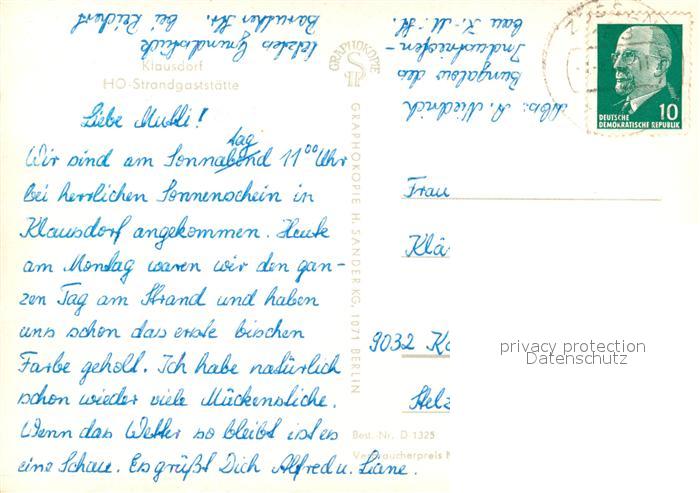 letztes Grundstück
Baruther Str. bei Reichert
Abs.: A. Niedrich
Bungalow des
Industriefen-
bau K.-M.-St.
GRAPHOKOPIE
DEUTSCHE
DEMOKRATISCHE REPUBLIK
10
Klausdorf
HO-Strandgaststätte
Liebe Mutti!
tag
Wir sind am Sonnabend 11⁰⁰ Uhr
bei herrlichen Sonnenschein in
Klausdorf angekommen. Heute
am Montag waren wir den gan-
zen Tag am Strand und haben
uns schon das erste bischen
Farbe geholt. Ich habe natürlich
schon wieder viele Mückenstiche.
Wenn das Wetter so bleibt ist es
eine Schau. Es grüßt Dich Alfred u. Liane.
GRAPHOKOPIE H. SANDER KG, 1071 BERLIN
Frau
Klä
9032 Ka
Stelz
Best.-Nr. D 1325
Verbraucherpreis M
privacy protection
Datenschutz